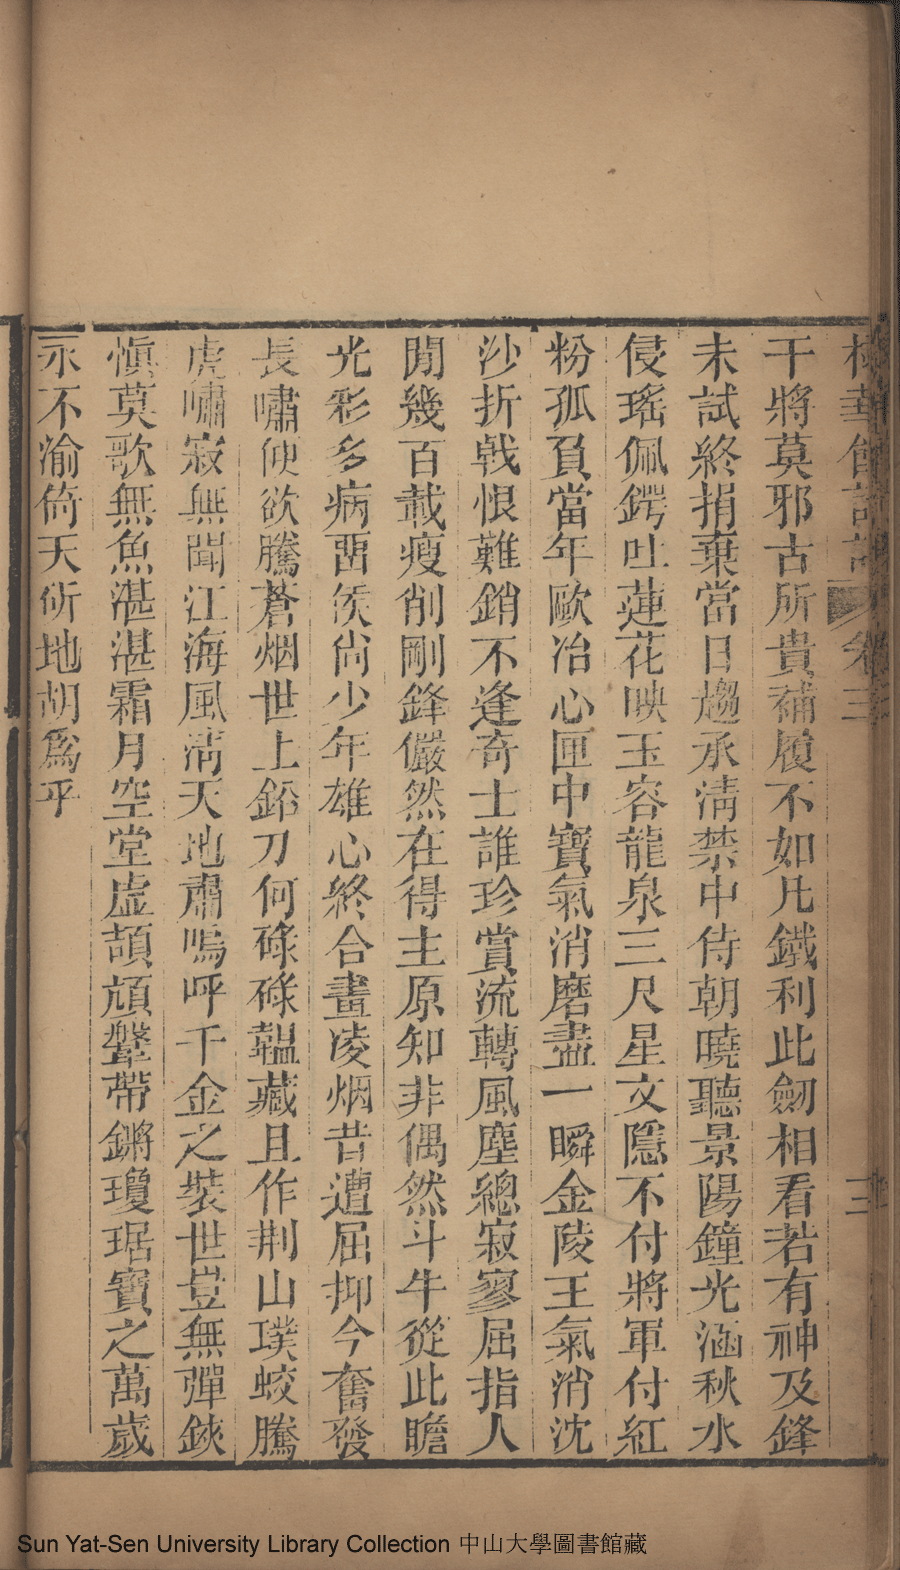 華館詩 卷三 三
干將莫邪古所貴補履不如凡鐵利此劒相看若有神及鋒
未試終捐棄當日趨承淸禁中侍朝曉聽景陽鐘光涵秋水
侵瑤佩鍔吐蓮花映玉容龍泉三尺星文隱不付將軍付紅
粉孤負當年歐冶心匣中寶氣消磨盡一瞬金陵王氣消沈
沙折戟恨難銷不逢奇士誰珍賞流轉風塵總寂寥屈指人
閒幾百載瘦削剛鋒儼然在得主原知非偶然斗牛從此瞻
光彩多病畱矦尙少年雄心終合畫凌烟昔遭屈抑今奮發
長嘯便欲騰蒼烟世上鉛刀何碌碌韞藏且作荆山璞蛟騰
虎嘯寂無聞江海風淸天地肅嗚呼千金之裝世豈無彈鋏
愼莫歌無魚湛湛霜月空堂虛頡頏鞶帶鏘瓊琚寶之萬歲
永不渝倚天斫地胡爲乎
Sun Yat-Sen University Library Collection 中山大學圖書館藏